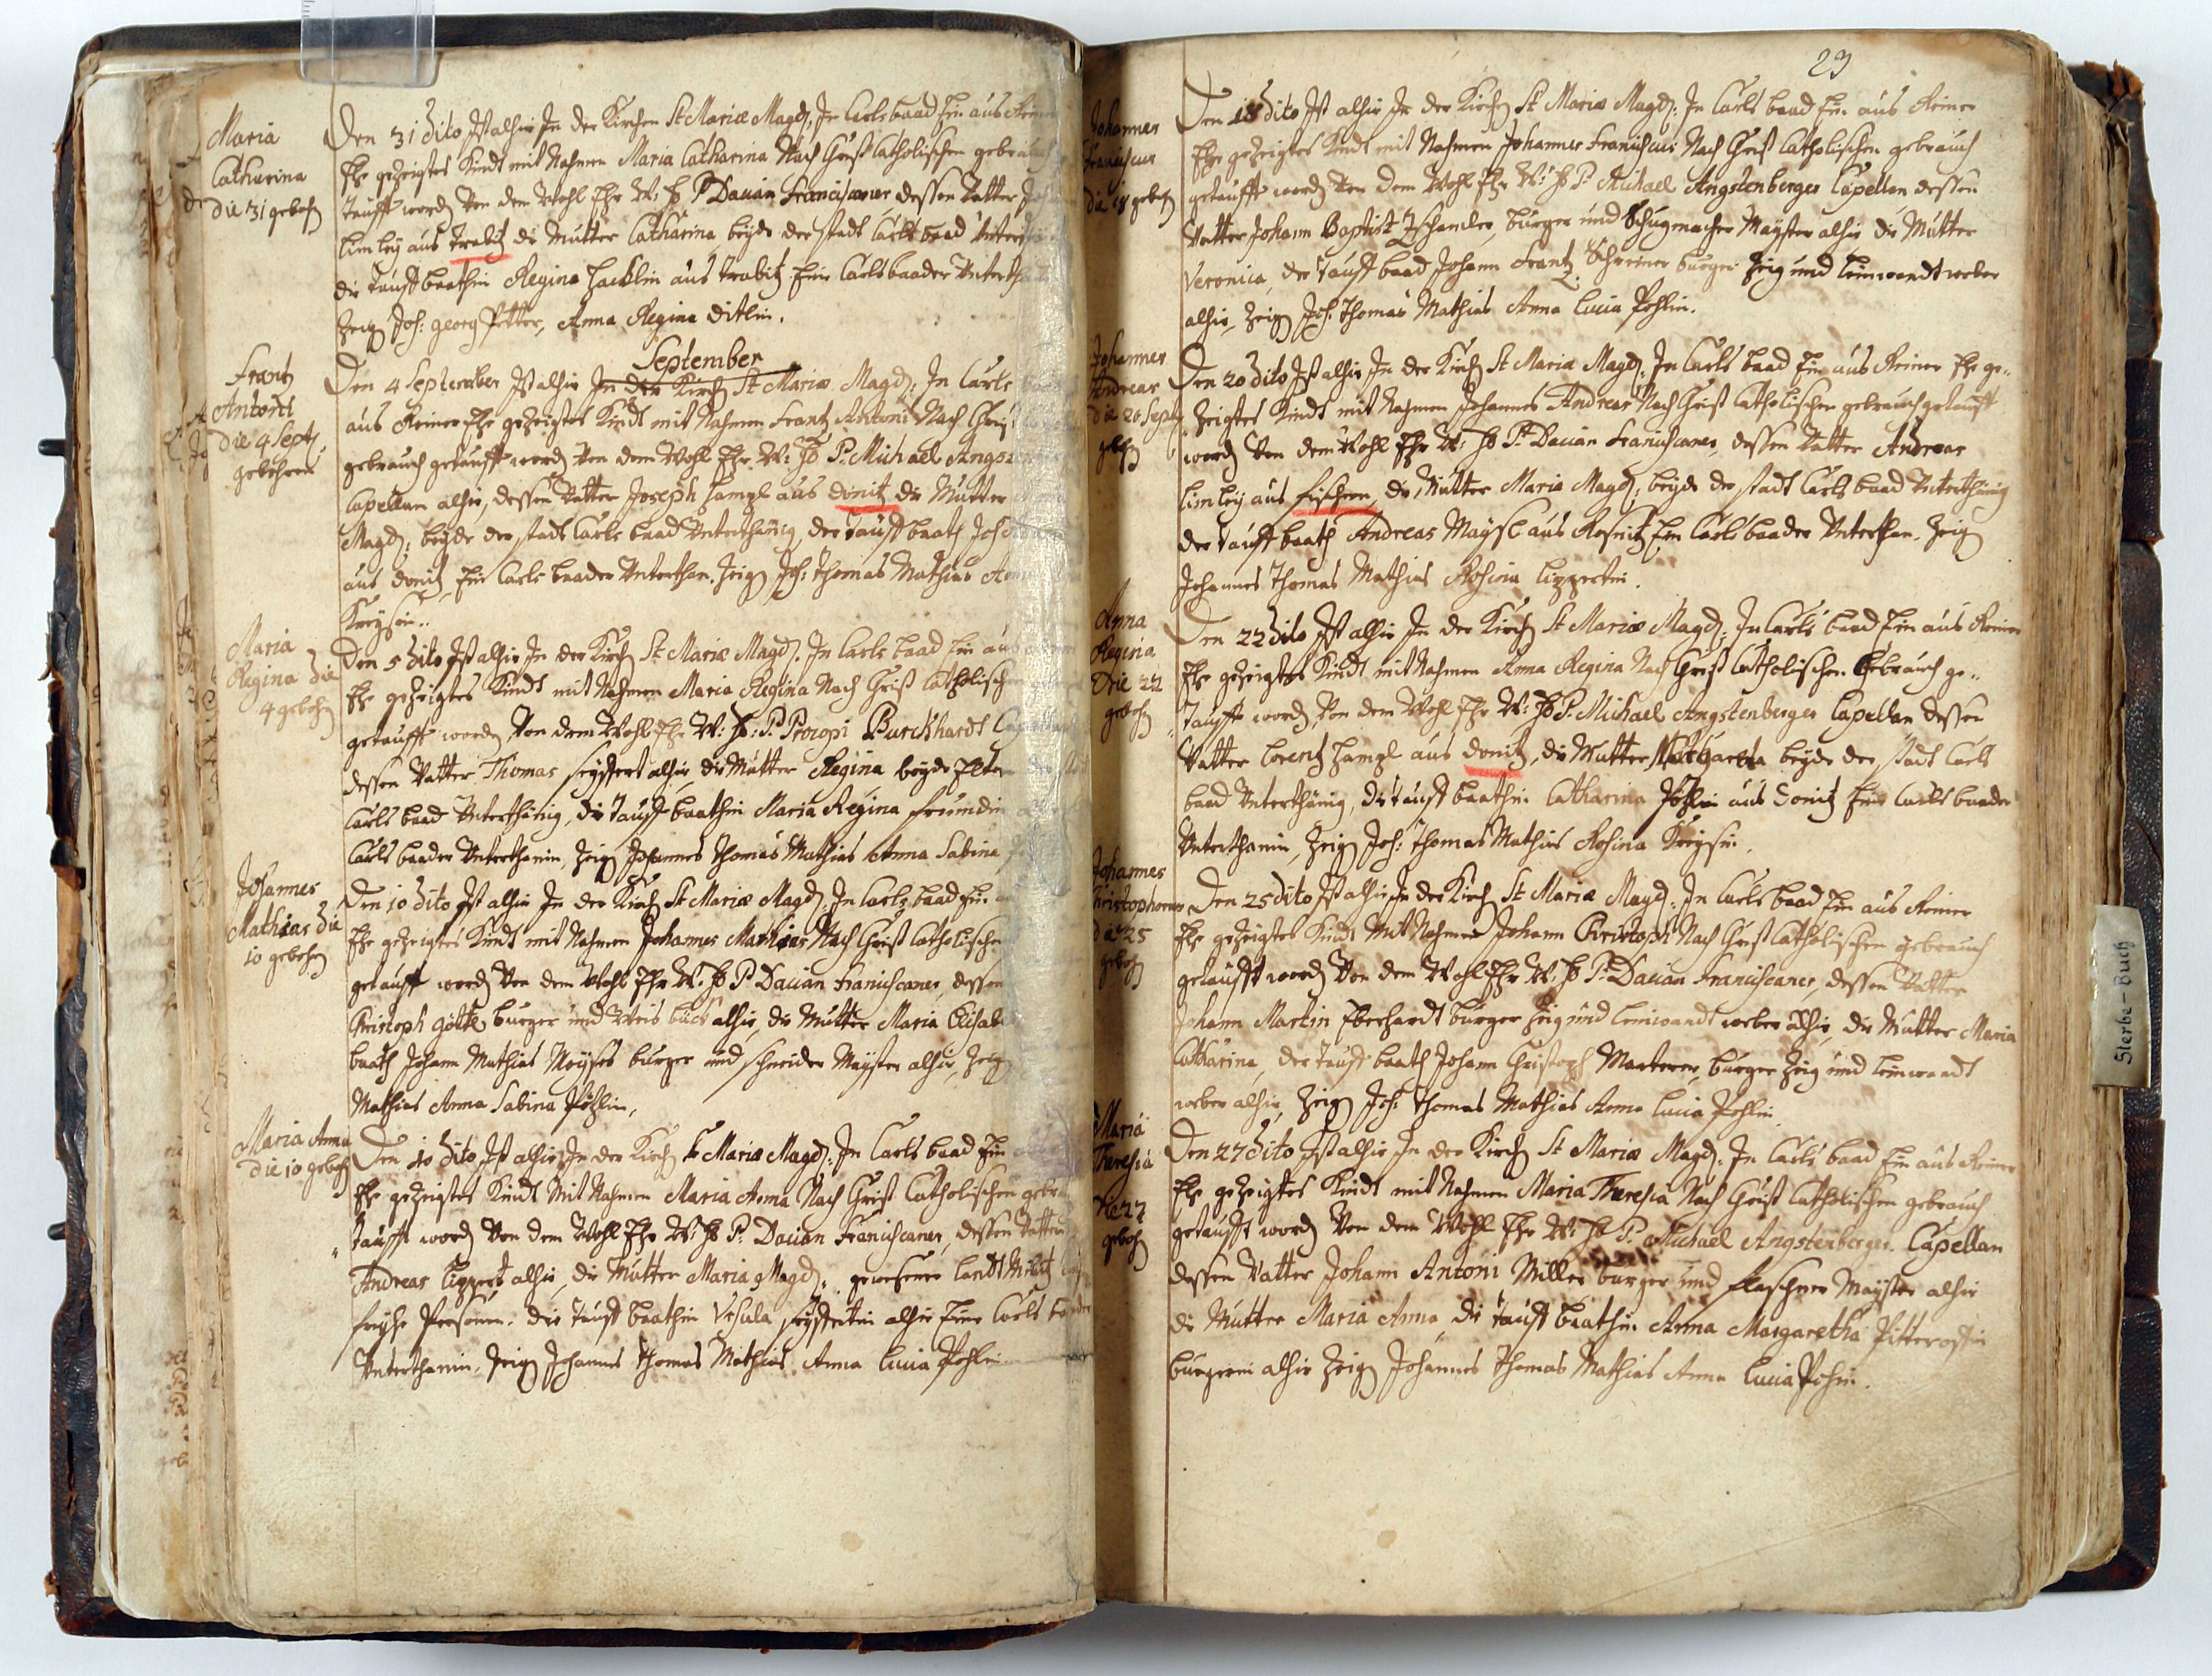 Maria
Catharina
die 31 gebohrn
Den 31 dito Ist alhir In der Kirchen St Mariæ Magd: In Carls baad Ein aus Reiner
Ehe gezeigtes Kindt mit Nahmen Maria Catharina Nach Christ Catholischen gebrauch
taufft word Von dem Wohl Ehr W: H P Dauian Franciscaner dessen Vatter
Limley aus Trabitz die Mutter Catharina, beyde der stadt Carls baad
die tauff baathin Regina Hacklin aus trabitz Eine Carlsbaader
Zeig Joh: georg Petter, Anna Regina ditlin.
September
Frantz
Antoni
die 4 Septs
gebohren
Den 4 September Ist alhir In der Kirch St Mariæ Magd: In Carls
aus Reiner Ehe gezeigtes Kindt mit Nahmen Frantz Antoni Nach Christ
gebrauch getaufft word Von dem Wohl Ehr W: H P: Michael
Capellan alhir, dessen Vatter Joseph Hampl aus donitz die Mutter
Magd: beyde der stadt Carls baad Unterthänig, der tauff baath
aus donitz Ein Carls baader Unterthan. Zeig Joh: Thomas Mathias
Kreysin..
Maria
Regina die
4 gebohrn
Den 5 dito Ist alhir In der Kirch St Mariæ Magd: In Carls baad Ein aus
Ehe gezeigtes Kindt mit Nahmen Maria Regina Nach Christ Catholischen
getaufft worden Von dem Wohl Ehr W: H: P: Procopi Burckhardt
dessen Vatter Thomas seyffert alhir, die Mutter Regina beyde
Carls baad Unterthänig, die tauff baathin Maria Regina freundin
Carls baader Unterthanin, Zeig Johannes Thomas Mathias Anna Sabina
Johannes
Mathias die
10 gebohrn
Den 10 dito Ist alhir In der Kirch St Mariæ Magd: In Carls baad Ein
Ehe gezeigtes Kindt mit Nahmen Johannes Mathias Nach Christ Catholischen
getaufft word Von dem Wohl Ehr W: H P Dauian Franciscaner, dessen
Christoph götte burger und Weis bäck alhir, die Mutter Maria
baath Johann Mathias Moyses burger und schneider Mayster alhir, Zeig
Mathias Anna Sabina Pötzlin,
Maria Anna
die 10 gebohrn
Den 10 dito Ist alhir In der Kirch St Mariæ Magd: In Carls baad Ein
Ehe gezeigtes Kindt Mit Nahmen Maria Anna Nach Christ Catholischen
taufft word Von dem Wohl Ehr W: H P: Dauian Franciscaner, dessen Vatter
Andreas Lippert alhir, die Mutter Maria Magd: gewesener
freyhe Personen. die tauff baathin Vrsula seyffertin alhir Eine Carls
Unterthanin. Zeig Johannes Thomas Mathias Anna Lucia Pohlin
23
Johannes
Franciscus
die 18 gebohrn
Den 18 dito Ist alhir In der Kirch St Mariæ Magd: In Carls baad Ein aus Reiner
Ehe gezeigtes Kindt mit Nahmen Johannes Franciscus Nach Christ Catholischen gebrauch
getaufft word Von dem Wohl Ehr W: H P: Michael Angstenberger Capellan dessen
Vatter Johann Baptist Tschamler, burger und Schugmacher Mayster alhir die Mutter
Veronica, der tauff baad Johann Frantz Schreiner burger Zeig und leinwandt weber
alhir, Zeig Joh: Thomas Mathias Anna Lucia Pohlin.
Johannes
Andreas
die 20 Septs
gebohrn
Den 20 dito Ist alhir In der Kirch St Mariæ Magd: In Carls baad Ein aus Reiner Ehe ge..
zeigtes Kindt mit Nahmen Johannes Andreas Nach Christ Catholischen gebrauch getaufft
word Von dem Wohl Ehr W: H P: Dauian Franciscaner, dessen Vatter Andreas
Limley aus Fischern, die Mutter Maria Magd: beyde der stadt Carls baad Unterthänig
der tauff baath Andreas Maysl aus Rosnitz Ein Carls baader Unterthan. Zeig
Johannes Thomas Mathias Rosina Lippertin.
Anna
Regina
Die 22
gebohrn
Den 22 dito Ist alhir In der Kirch St Mariæ Magd: In Carls baad Ein aus Reiner
Ehe gezeigtes Kindt mit Nahmen Anna Regina Nach Christ Catholischen Gebrauch ge..
taufft word Von dem Wohl Ehr W: H P: Michael Angstenberger Capellan dessen
Vatter Lorentz Hampl aus donitz, die Mutter Margareta beyde der stadt Carls
baad Unterthänig, die tauff baathin Catharina Pöhlin aus donitz Eine Carls baader
Unterthanin, Zeig Joh: Thomas Mathias Rosina Kreysin.
Johannes
Christophorus
die 25
gebohrn
Den 25 dito Ist alhir In der Kirch St Mariæ Magd: In Carls baad Ein aus Reiner
Ehe gezeigtes Kindt Mit Nahmen Johann Christoph Nach Christ Catholischen gebrauch
getaufft word Von dem Wohl Ehr W: H P: Dauian Franciscaner, dessen Vatter
Johann Martin Eberhardt burger Zeig und leinwandt weber alhir, die Mutter Maria
Catharina, der tauff baath Johann Christoph Marterer, burger Zeig und leinwandt
weber alhir, Zeig Joh: Thomas Mathias Anna Lucia Pohlin.
Maria
Theresia
die 27
gebohrn
Den 27 dito Ist alhir In der Kirch St Mariæ Magd: In Carls baad Ein aus Reiner
Ehe gezeigtes Kindt mit Nahmen Maria Theresia Nach Christ Catholischen gebrauch
getaufft word Von dem Wohl Ehr W: H P: Michael Angstenberger Capellan
dessen Vatter Johann Antoni Miller burger und flaschner Mayster alhir
die Mutter Maria Anna die tauff baathin Anna Margaretha Pitteroffin
burgerin alhir Zeig Johannes Thomas Mathias Anna Lucia Pohlin.
Sterbe-Buch